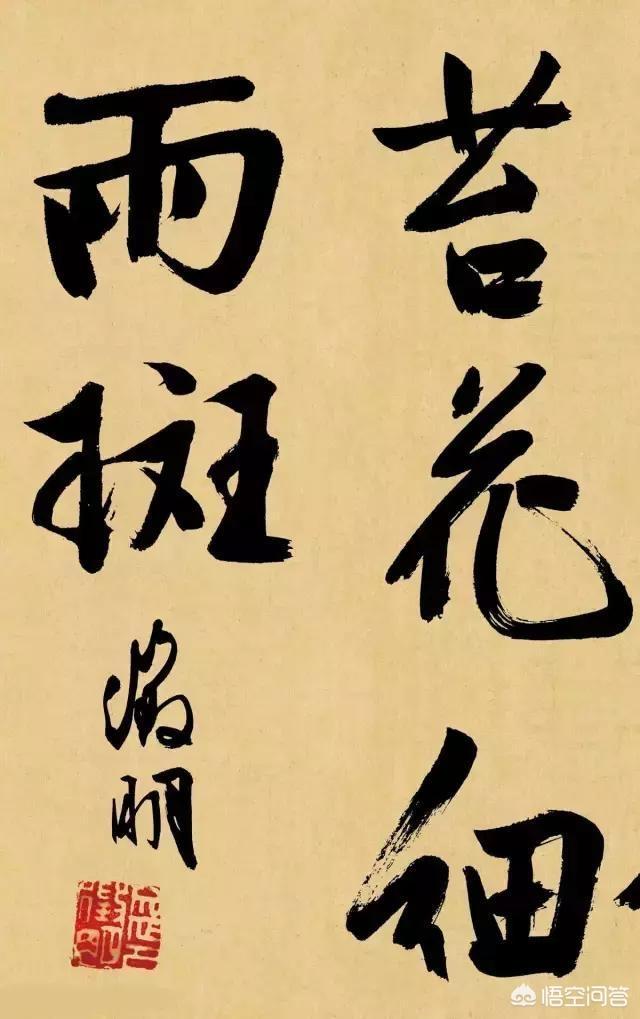 苔花細
雨斑
徵明
悟空问答